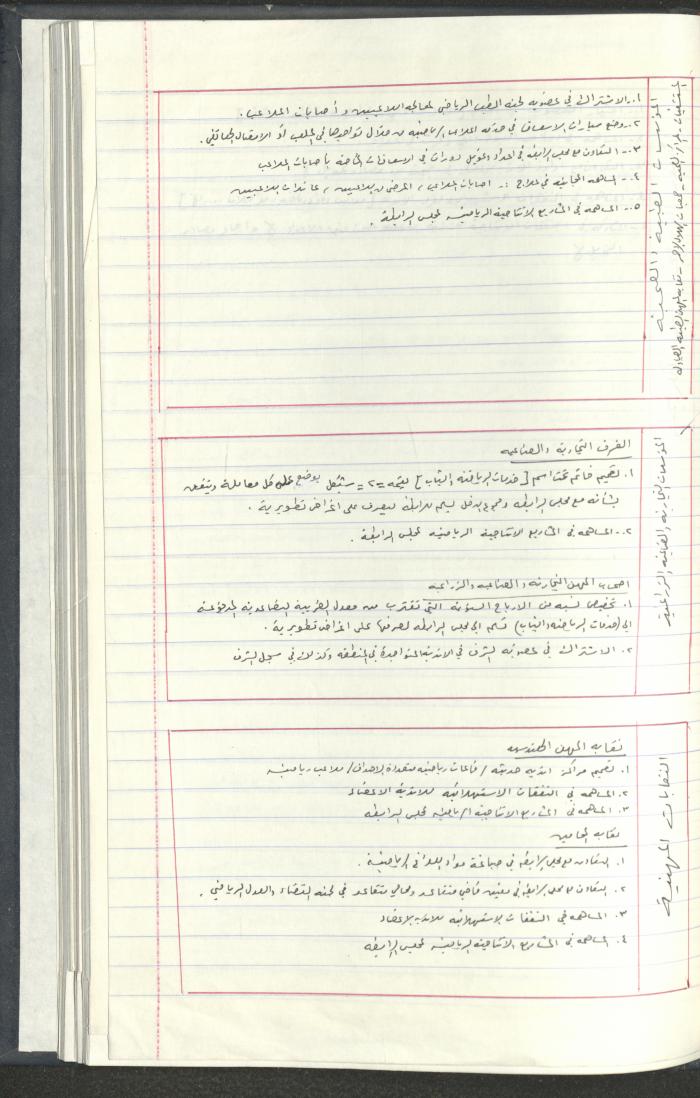 المؤسسات الطبية والصحية
المستشفيات - المراكز الصحية - جمعيات الهلال الأحمر - نقابة المهن الطبية الصيادلة
١. الاشتراك في عضوية لجنة الطب الرياضي لمعالجة اللاعبين وأصابات الملاعب.
٢. وضع سيارات الاسعاف في خدمة الملاعب الرياضية من خلال تواجدها في الملعب أو الاتصال الهاتفي.
٣. التعاون مع مجلس الرابطة في اعداد وتمويل دورات في الاسعافات الخاصة بأصابات الملاعب
٤. المساهمة المجانية في علاج :- اصابات الملاعب، المرضى اللاعبين، عائدات اللاعبين
٥. المساهمة في المشاريع الانتاجية الرياضية لمجلس الرابطة.
المؤسسات التجارية والصناعية والزراعية
الغرف التجارية والصناعية
١. تصميم خاتم تحت اسم [خدمات الرياضة والشباب] بقيمة =٢= شيكل يوضع على كل معاملة ويتفق
بشأنه مع مجلس الرابطة ومجموع الدخل يسلم للرابطة ليصرف على اغراض تطويرية.
٢. المساهمة في المشاريع الانتاجية الرياضية لمجلس الرابطة.
اصحاب المهن التجارية والصناعية والزراعية
١. تخصيص نسبة من الارباح السنوية التي تقترب من معدل الضريبة التصاعدية المدفوعة
الى (خدمات الرياضة والشباب) تسلم الى مجلس الرابطة لصرفها على اغراض تطويرية.
٢. الاشتراك في عضوية الشرف في الاندية المتواجدة في المنطقة وكذلك في سجل الشرف
النقابات المهنية
نقابة المهن الهندسية
١. تصميم مراكز اندية حديثة / قاعات رياضية متعددة الاهداف / ملاعب رياضية
٢. المساهمة في النفقات الاستهلاكية للاندية الاعضاء
٣. المساهمة في المشاريع الانتاجية الرياضية لمجلس الرابطة
نقابة المحامين
١. التعاون مع مجلس الرابطة في صياغة مواد القوانين الرياضية.
٢. التعاون مع مجلس الرابطة في تعيين قاضي متقاعد ومحامي متقاعد في لجنة القضاء والعدل الرياضي.
٣. المساهمة في النفقات الاستهلاكية للاندية الاعضاء
٤. المساهمة في المشاريع الانتاجية الرياضية لمجلس الرابطة